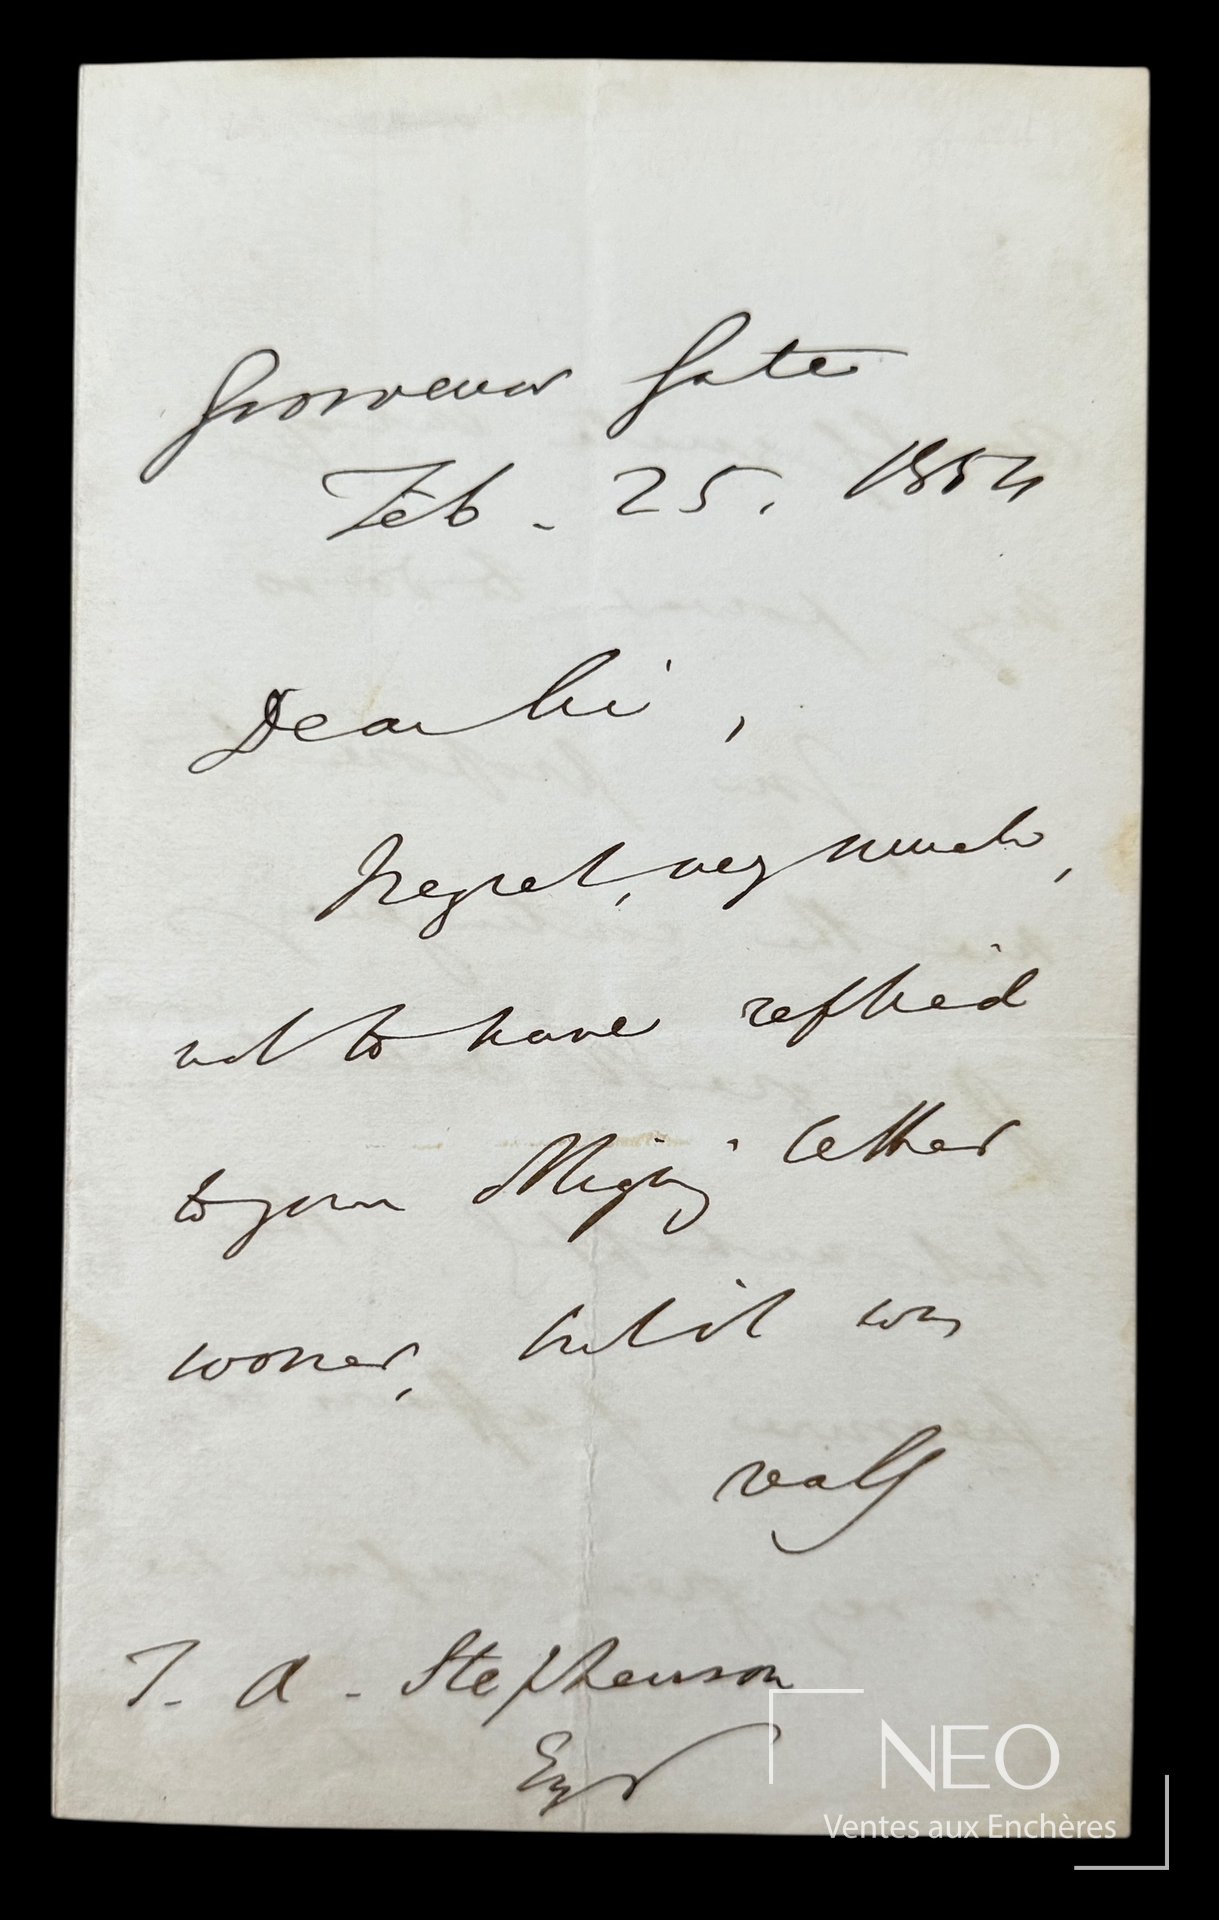 Grosvenor Gate
Feb - 25. 1854
Dear Sir,
I regret, very much,
not to have replied
to your obliging letter
sooner, but it was
really
T. A. Stephenson
Esqr
NEO
Ventes aux Enchères